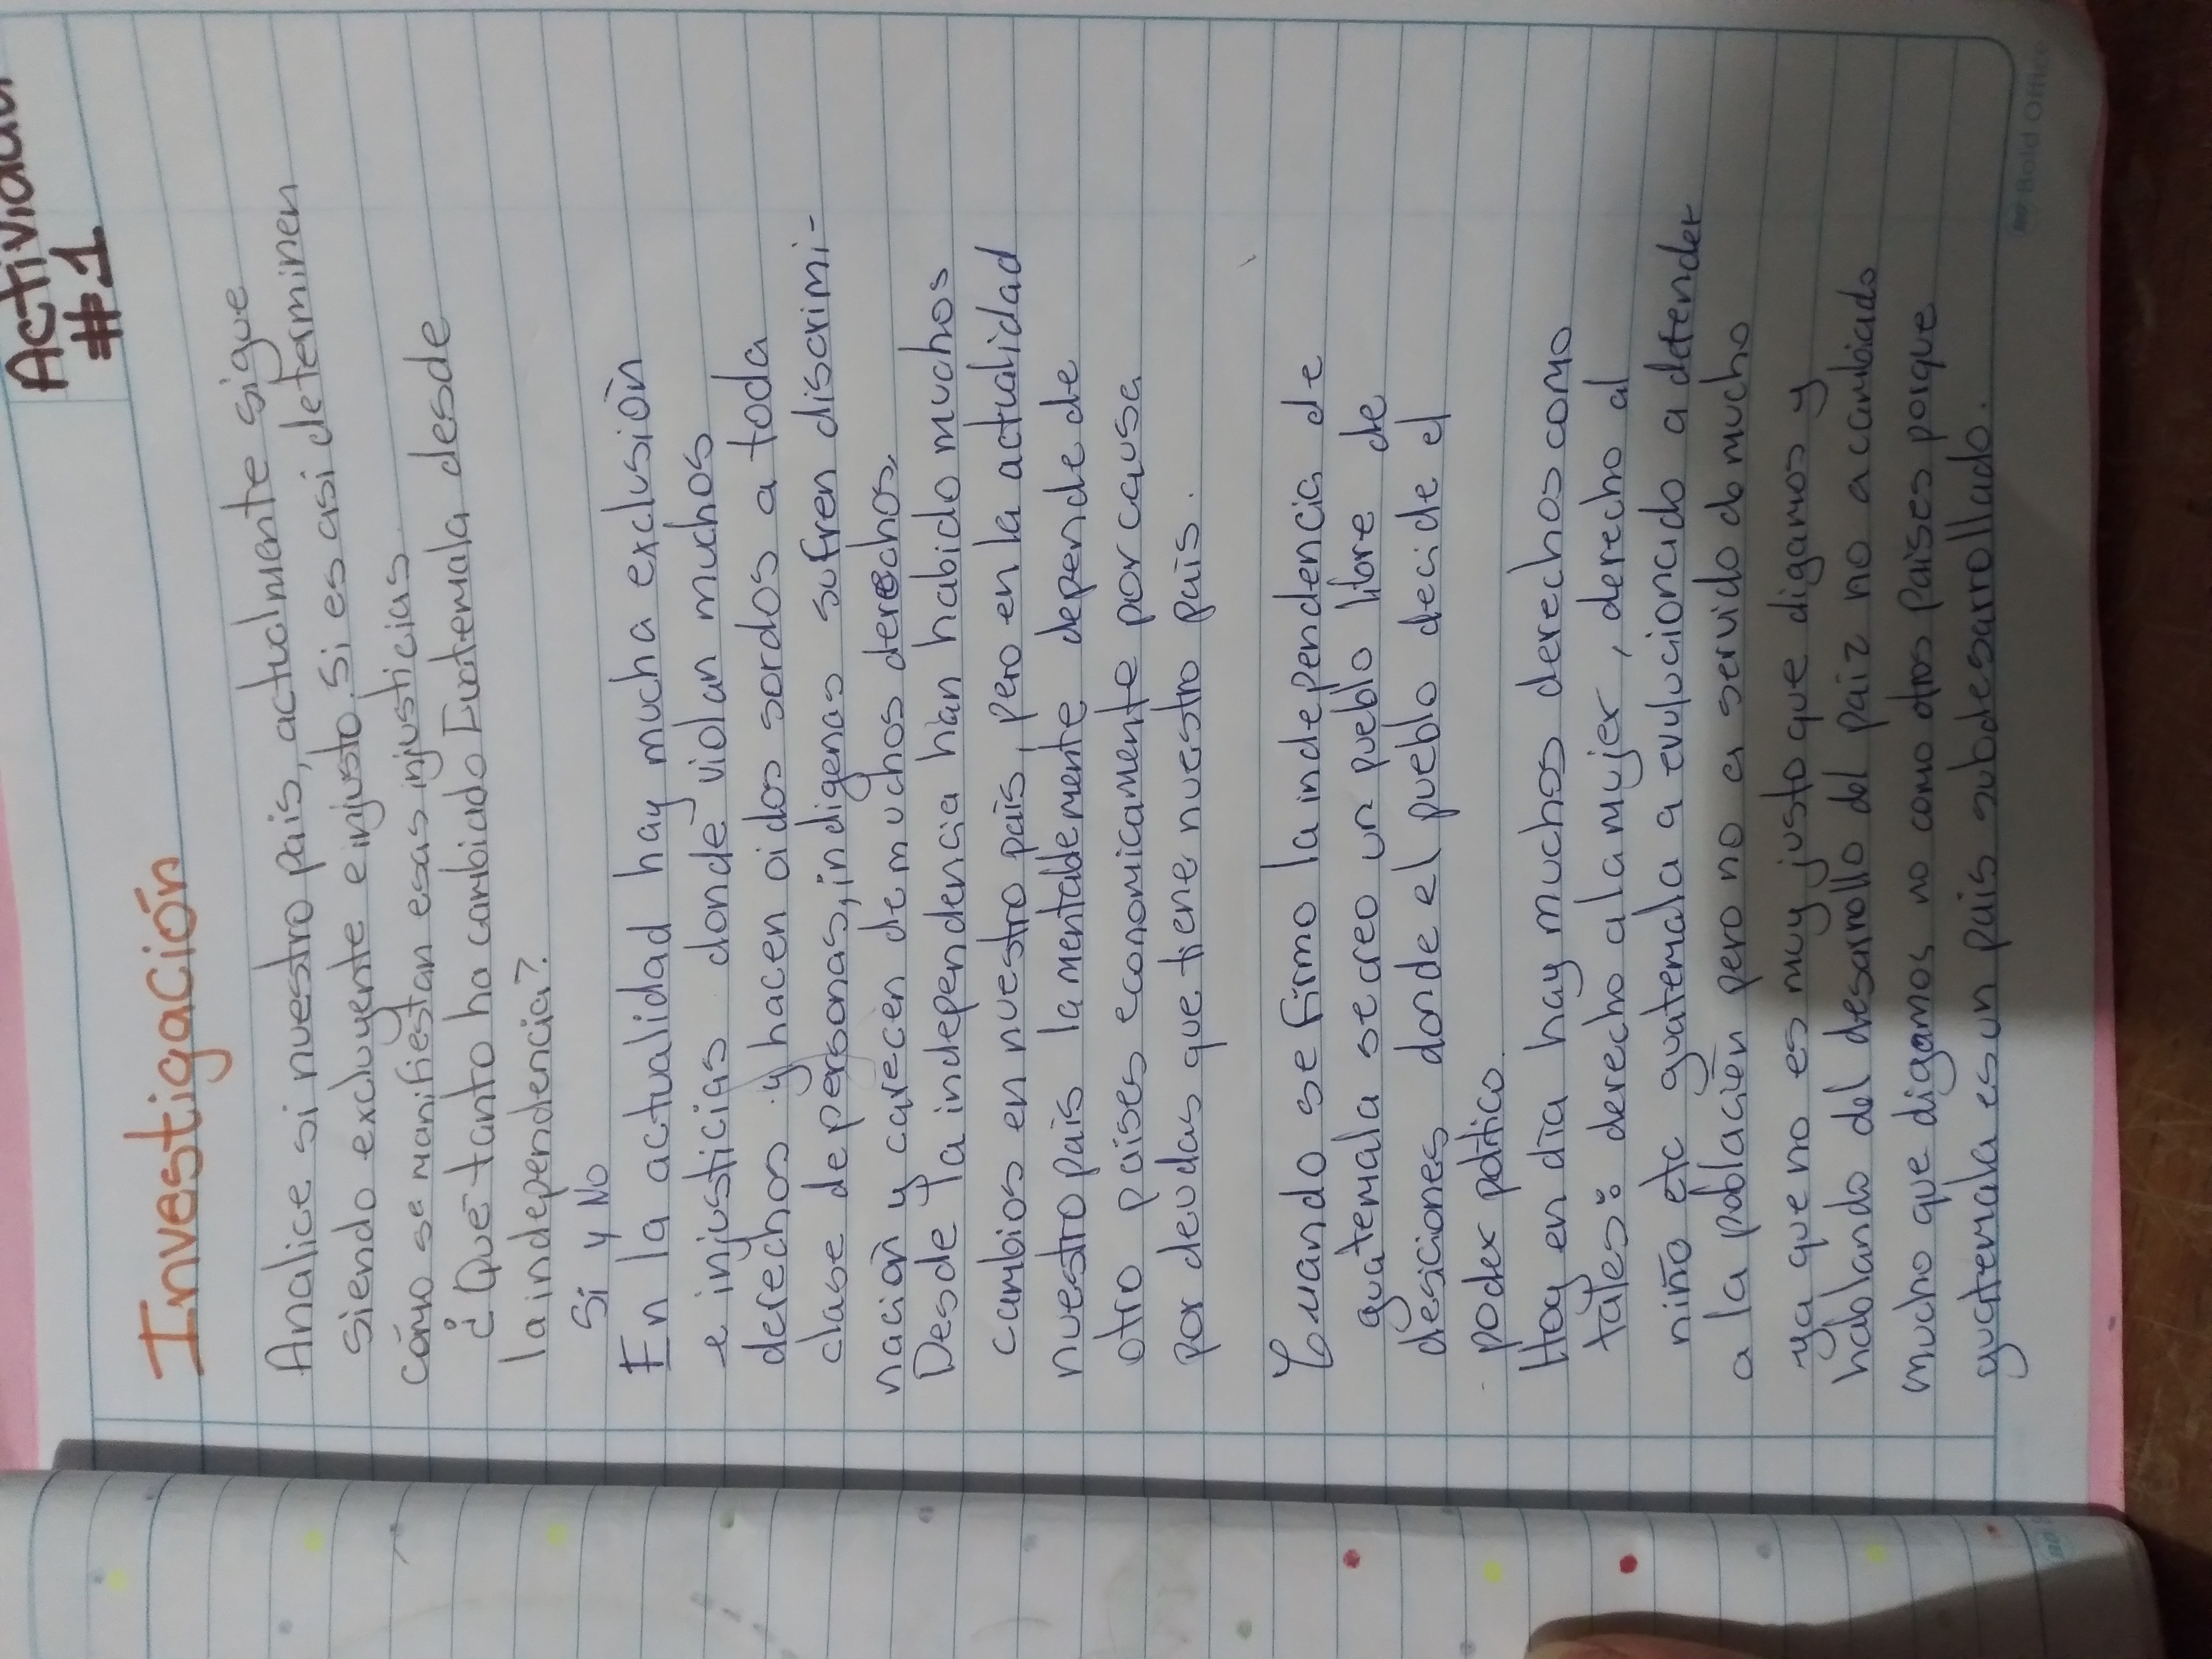 Actividad
#1
Investigación
Analice si nuestro país, actualmente sigue
siendo excluyente e injusto. Si es asi determinen
cómo se manifiestan esas injusticias.
¿Qué tanto ha cambiado Guatemala desde
la independencia?.
Si y No
En la actualidad hay mucha exclusión
e injusticias donde violan muchos
derechos y hacen oidos sordos a toda
clase de personas, indigenas sufren discrimi-
nación y carecen de muchos derechos.
Desde la independencia han habido muchos
cambios en nuestro país, pero en la actualidad
nuestro país lamentablemente depende de
otro países economicamente por causa
por deudas que tiene nuestro país.
Cuando se firmo la independencia de
guatemala se creo un pueblo libre de
desiciones donde el pueblo decide el
poder politico.
Hoy en dia hay muchos derechos como
tales: derecho a la mujer, derecho al
niño etc guatemala a evulucionado a defender
a la población pero no a servido de mucho
ya que no es muy justo que digamos y
hablando del desarrollo del paiz no a cambiado
mucho que digamos no como otros paises porque
guatemala es un pais subdesarrollado.
Bold Office